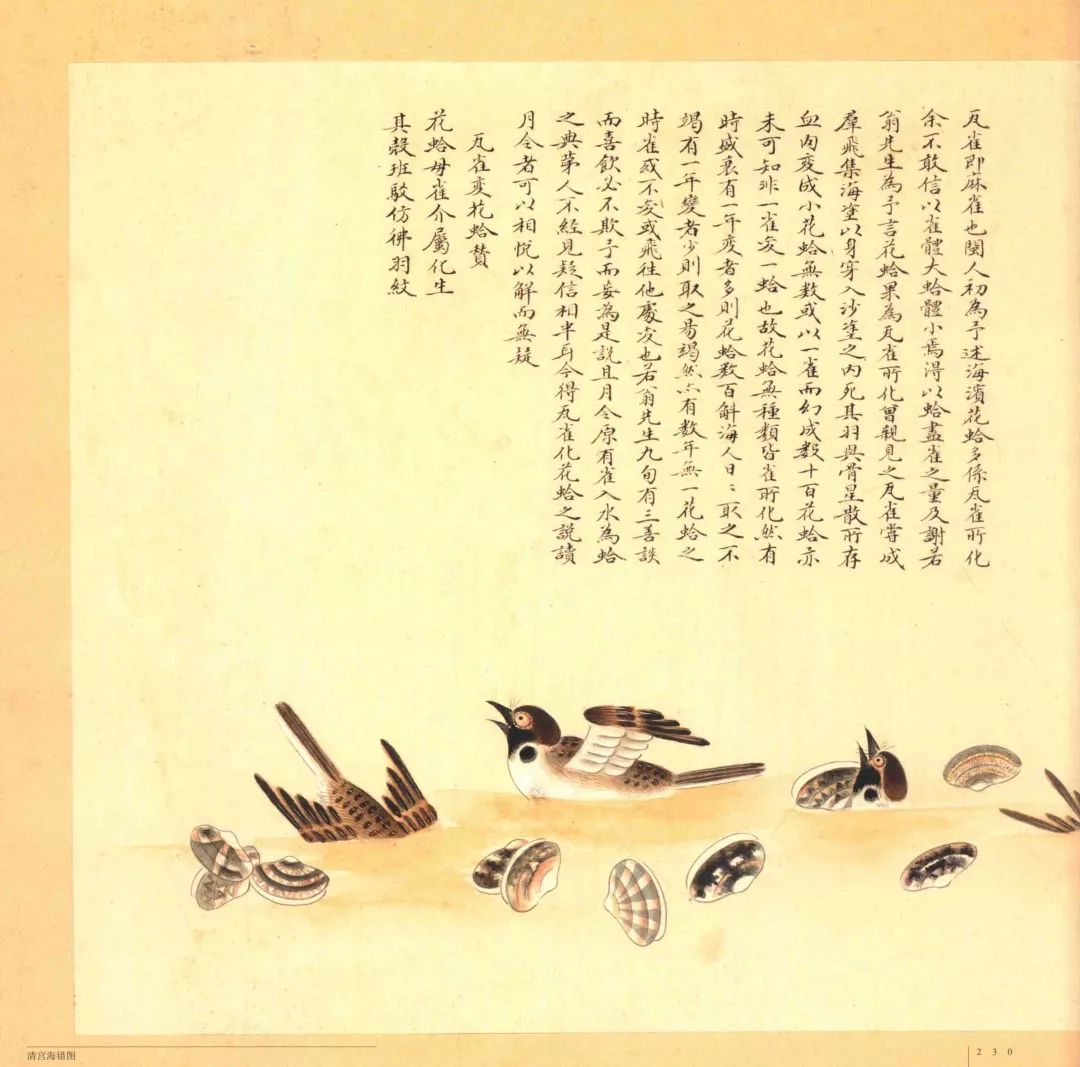 瓦雀即麻雀也閩人初為予述海濱花蛤多係瓦雀所化
余不敢信以雀體大蛤體小焉得以蛤盡雀之量及謝若
翁先生為予言花蛤果為瓦雀所化曾親見之瓦雀嘗成
羣飛集海塗以身穿入沙塗之內死其羽與骨星散所存
血肉変成小花蛤無数或以一雀而幻成数十百花蛤亦
未可知非一雀変一蛤也故花蛤無種類皆雀所化然有
時盛衰有一年変者多則花蛤数百斛海人日〻取之不
竭有一年變者少則取之易竭然亦有数年無一花蛤之
時雀或不変或飛往他處変也若翁先生九旬有三善談
而喜飲必不欺予而妄為是說且月令原有雀入水為蛤
之典第人不經見疑信相半耳今得瓦雀化花蛤之說讀
月令者可以相悅以解而無疑
瓦雀変花蛤賛
花蛤母雀介屬化生
其殼班駁仿彿羽紋
清宫海错图
230